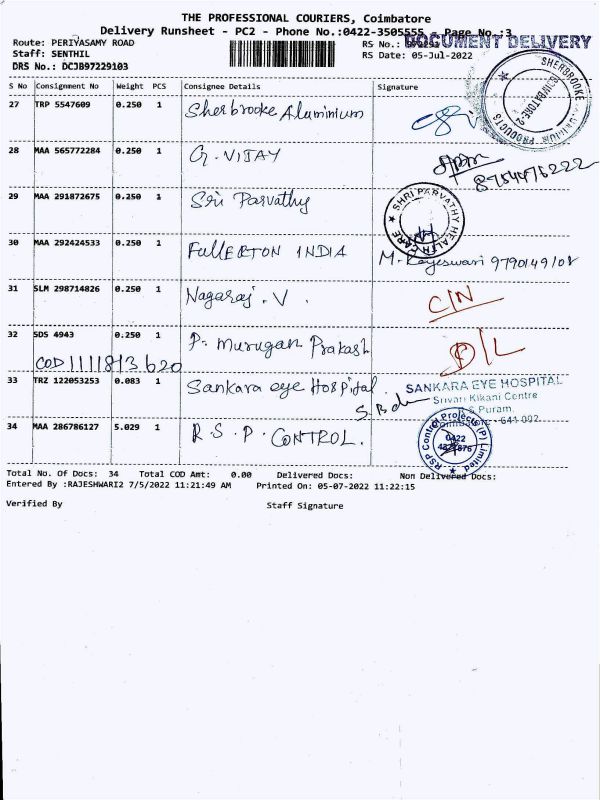 THE PROFESSIONAL COURIERS, Coimbatore
Delivery Runsheet - PC2 - Phone No.:0422-3505555 - Page No.:3
DOCUMENT DELIVERY
Route: PERIYASAMY ROAD RS No.:
Staff: SENTHIL RS Date: 05-Jul-2022
DRS No.: DCJB97229103
SHERBROOKE PRODUCTS COIMBATORE
S No Consignment No Weight PCS Consignee Details Signature
27 TRP 5547609 0.250 1 Sherbrooke Aluminium
28 MAA 565772284 0.250 1 G. VIJAY
8754476222
29 MAA 291872675 0.250 1 Sri Parvathy
SHRI PARVATHY HEALTH CARE
30 MAA 292424533 0.250 1 FullERTON INDIA M. Rajeswari 9790149108
31 SLM 298714826 0.250 1 Nagaraj. V. C/N
32 SDS 4943 0.250 1 P. Murugan Prakash D/L
COD 1111813620
33 TRZ 122053253 0.083 1 Sankara eye Hospital
SANKARA EYE HOSPITAL
Srivari Kikani Centre
R.S Puram,
Coimbatore - 641 002
34 MAA 286786127 5.029 1 R.S.P. CONTROL.
RSP Control Projects (P) Limited
0422
Total No. Of Docs: 34 Total COD Amt: 0.00 Delivered Docs: Non Delivered Docs:
Entered By :RAJESHWARI2 7/5/2022 11:21:49 AM Printed On: 05-07-2022 11:22:15
Verified By Staff Signature